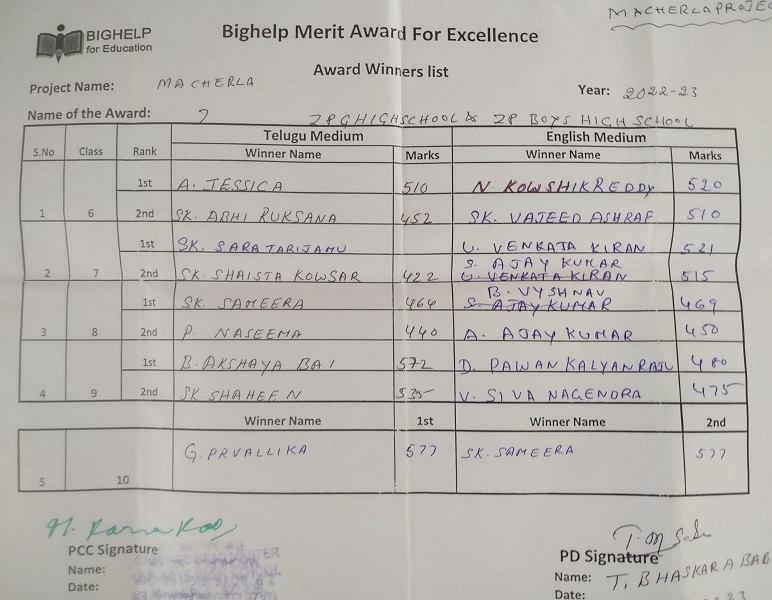 MACHERLA PROJEC
BIGHELP
for Education
Bighelp Merit Award For Excellence
Award Winners list
Project Name: MACHERLA
Year: 2022-23
Name of the Award: ZPGHIGHSCHOOL & ZP BOYS HIGH SCHOOL
S.No Class Rank Telugu Medium English Medium
Winner Name Marks Winner Name Marks
1st A. JESSICA 510 N. KOWSHIKREDDY 520
1 6 2nd SK. ABHI RUKSANA 452 SK. VAJEED ASHRAF 510
1st SK. SARATARIJAHU U. VENKATA KIRAN 521
S. AJAY KUMAR
2 7 2nd SK. SHAISTA KOWSAR 422 U. VENKATA KIRAN 515
B. VYSHNAV
1st SK. SAMEERA 464 S. AJAY KUMAR 469
3 8 2nd P. NASEEMA 440 A. AJAY KUMAR 450
1st B. AKSHAYA BAI 572 D. PAWAN KALYAN RAJU 480
4 9 2nd SK. SHAHEEN 535 V. SIVA NAGENDRA 475
Winner Name 1st Winner Name 2nd
5 10 G. PRVALLIKA 577 SK. SAMEERA 577
PCC Signature
PD Signature
Name:
Name: T. BHASKARA BAB
Date:
Date: